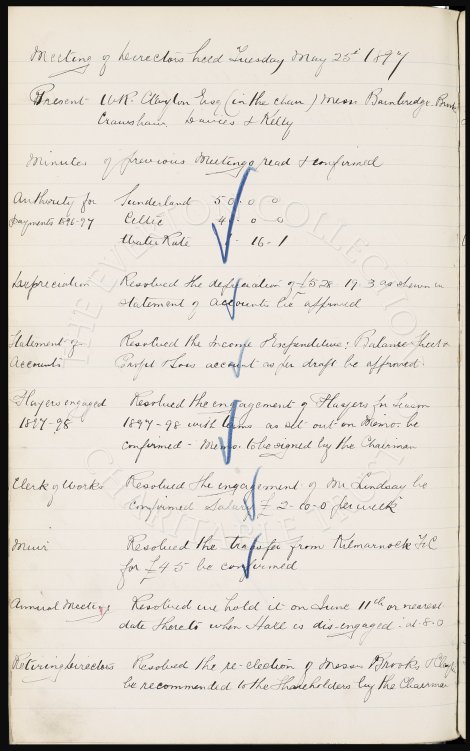 Meeting of Directors held Tuesday May 25th 1897
Present W.R. Clayton Esq (in the chair) Messrs Bainbridge. Brooks
Crawshaw, Davies & Kelly
Minutes of previous Meetings read & confirmed
Authority for Sunderland 50. 0 0
payments 1896-97 Celtic 40. 0 0
Water Rate 16. 1
Depreciation Resolved the depreciation of £528. 19. 3 as shewn in
statement of accounts be affirmed
Statement of Resolved the Income & Expenditure: Balance Sheet &
Accounts Profit & Loss account as per draft be approved.
Players engaged Resolved the engagement of Players for Season
1897-98 1897-98 with terms as set out on Memo. be
confirmed - Memo. to be signed by the Chairman
Clerk of Works Resolved the engagement of Mr Lindsay be
confirmed Salary £2-10-0 per week
Muir Resolved the transfer from Kilmarnock F.C
for £45 be confirmed
Annual Meeting Resolved we hold it on June 11th or nearest
date thereto when Hall is dis-engaged: at 8.0
Retiring Directors Resolved the re-election of Messrs Brooks, &
be recommended to the Shareholders by the Chairman
THE EVERTON COLLECTION
CHARITABLE TRUST